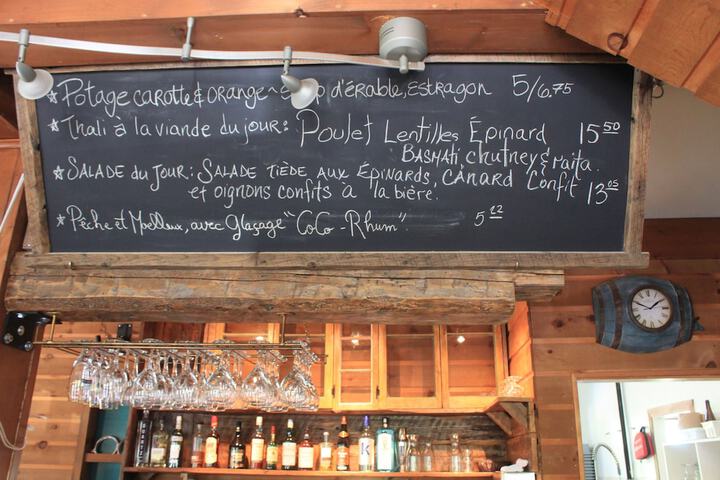 * Potage carotte & orange ~ sirop d'érable, Estragon 5/6.75
* Thali à la viande du jour: Poulet Lentilles Épinard 15 50
Basmati, chutney & raita.
* Salade du jour: Salade tiède aux épinards, canard confit 13 05
et oignons confits à la bière.
* Pêche et Moelleux, avec glaçage "Coco-Rhum". 5 22